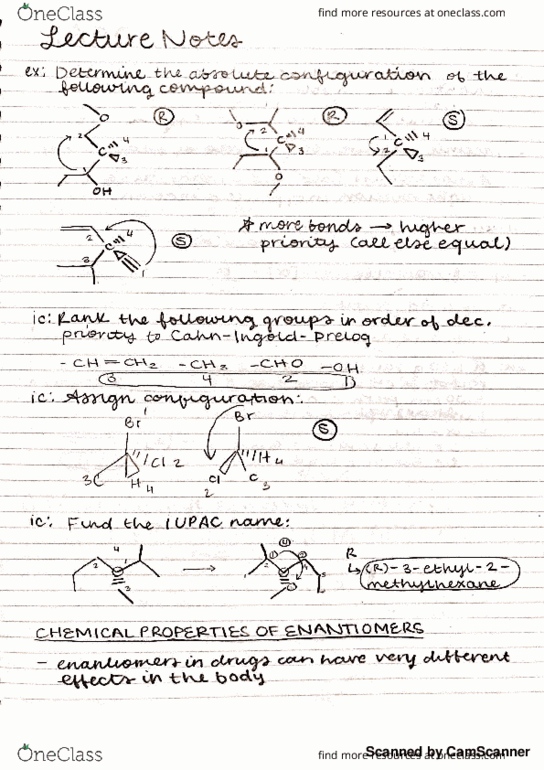 OneClass
find more resources at oneclass.com
Lecture Notes
ex: Determine the absolute configuration of the
following compound:
R
R
S
O
O
O
O
C
C
C
OH
1
2
3
4
1
2
3
4
1
2
3
4
C
1
2
3
4
S
* more bonds → higher
priority (all else equal)
ic: Rank the following groups in order of dec.
priority to Cahn-Ingold-Prelog
- CH = CH2 - CH2 - CHO - OH
3 4 2 1
ic: Assign configuration:
Br 1
Br
S
Cl 2
H 4
3C
H 4
Cl
2
C
3
ic: Find the IUPAC name:
4
2
3
→
R
↳ (R)-3-ethyl-2-
methylhexane
CHEMICAL PROPERTIES OF ENANTIOMERS
- enantiomers in drugs can have very different
effects in the body
OneClass
find more resources at oneclass.com
Scanned by CamScanner